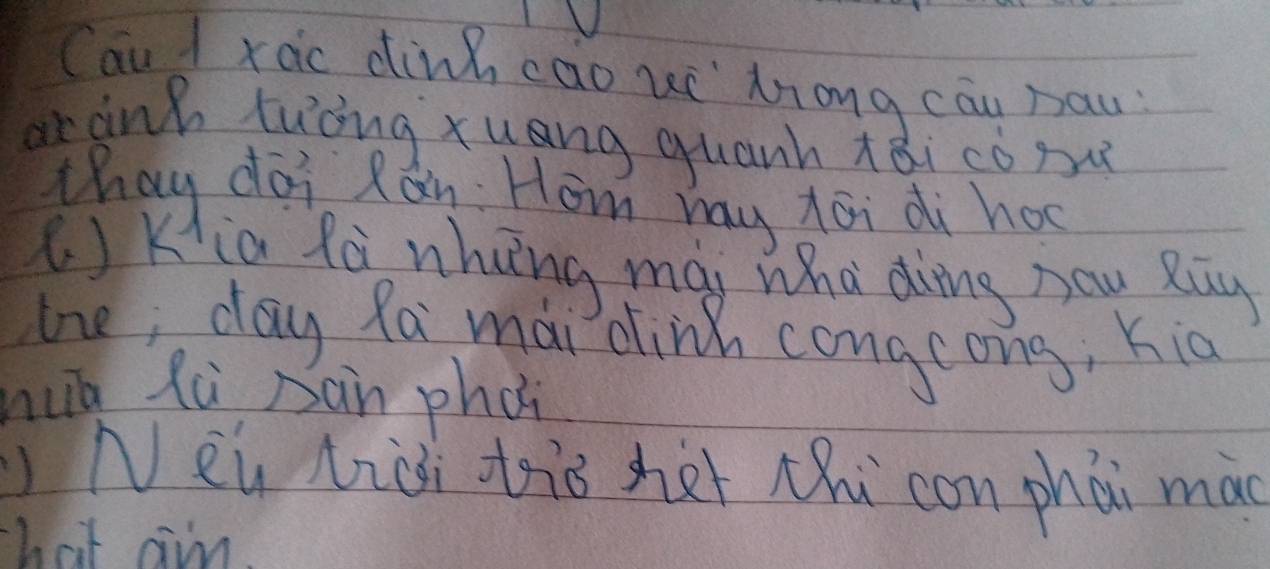 Câu 1 xác định các vế trong câu sau:
a) cảnh tượng xung quanh tôi có sự
thay đổi lớn: Hôm nay tôi đi học
b) Kia là những mái nhà đứng sau lũy
tre; đây là mái đình cong cong; kia
nữa là sân phơi
c) Nếu trời trở rét thì con phải mặc
thật ấm.